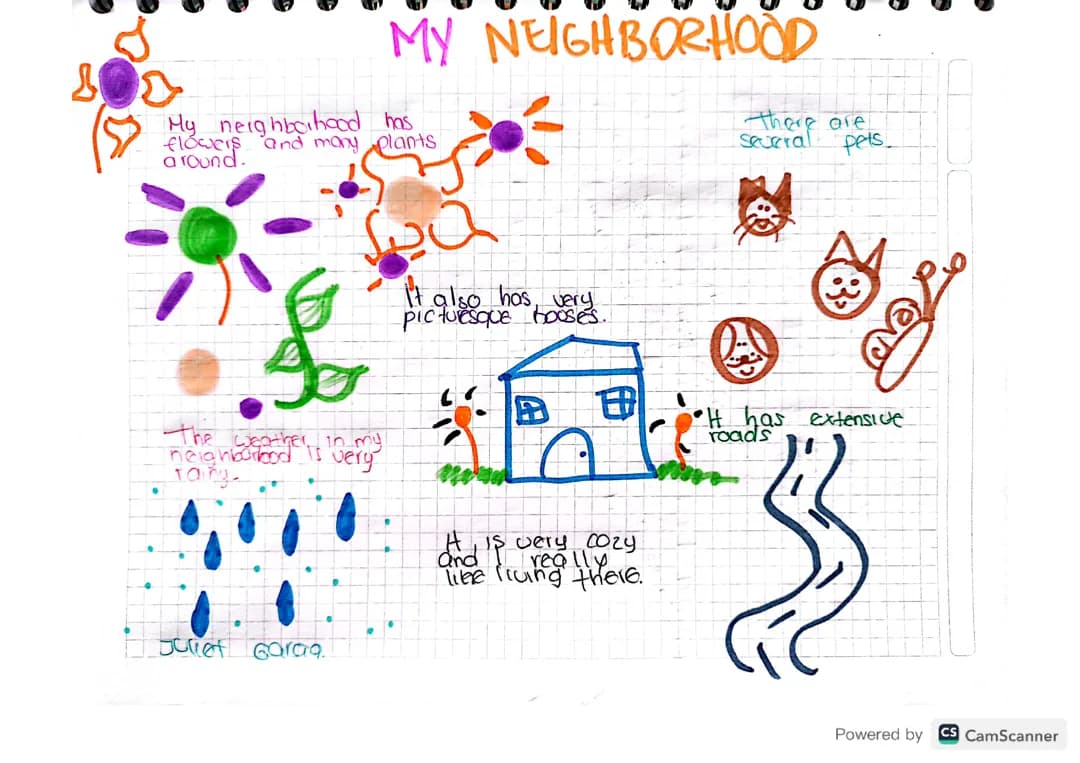 MY NEIGHBORHOOD
My neighborhood has
flowers and many plants
around.
There are
several pets.
It also has very
picturesque houses.
It has extensive
roads
The weather in my
neighborhood is very
rainy.
It is very cozy
and I really
like living there.
Juliet Garcia.
Powered by CS CamScanner